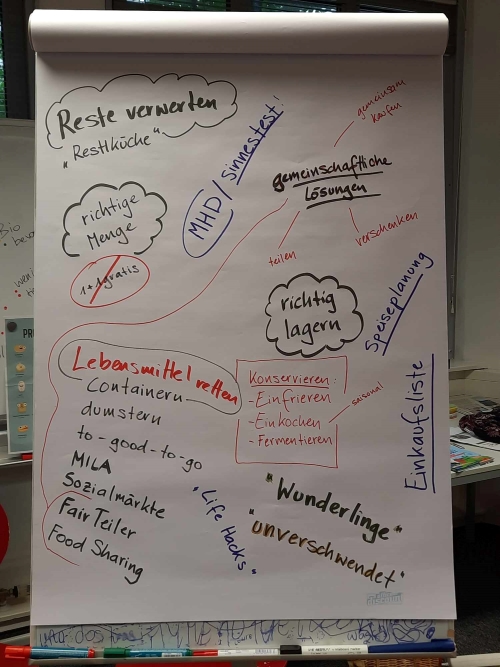 Reste verwerten
"Restlküche"
MHD/Sinnestest!
gemeinsam
kaufen
gemeinschaftliche
Lösungen
teilen
verschenken
richtige
Menge
1+1 gratis
richtig
lagern
Speiseplanung
Einkaufsliste
Lebensmittel retten
containern
dumstern
to-good-to-go
MILA
Sozialmärkte
FairTeiler
Food Sharing
Konservieren:
- Einfrieren
- Einkochen
- Fermentieren
saisonal
"Life Hacks"
"Wunderlinge"
"unverschwendet"
Bio